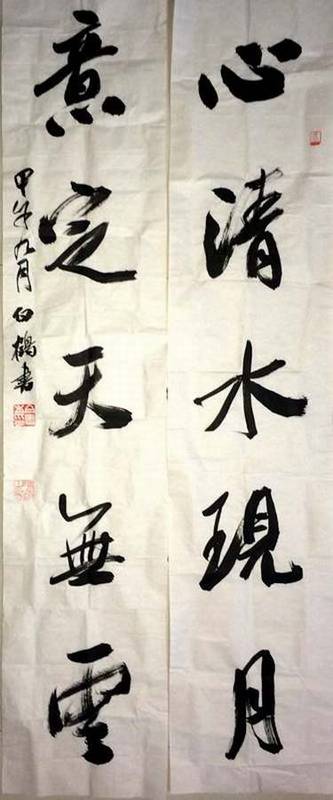 心清水現月
意定天無雲
甲午九月 白鶴書